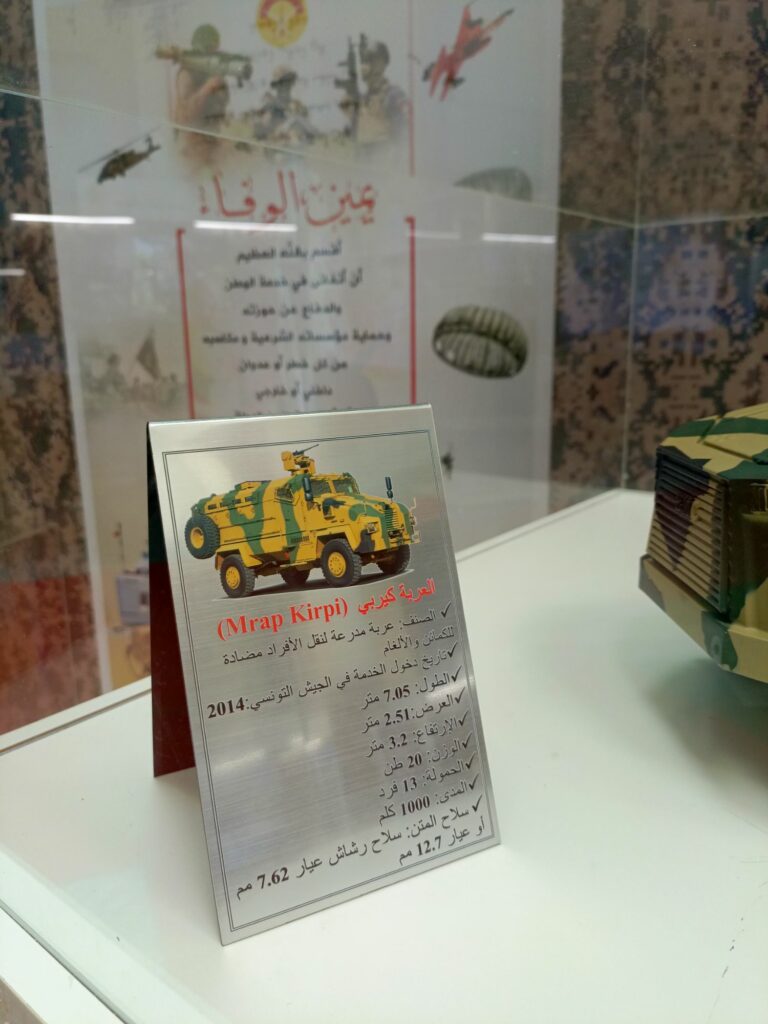 يمين الوفاء
أقسم بالله العظيم
أن أتفانى في خدمة الوطن
والدفاع عن حوزته
وحماية مؤسساته الشرعية و مكاسبه
من كل خطر أو عدوان
داخلي أو خارجي
العربة كيربي (Mrap Kirpi)
✓ الصنف: عربة مدرعة لنقل الأفراد مضادة
للكمائن والألغام
✓تاريخ دخول الخدمة في الجيش التونسي:2014
✓الطول: 7.05 متر
✓العرض:2.51 متر
✓الإرتفاع: 3.2 متر
✓الوزن: 20 طن
✓الحمولة: 13 فرد
✓المدى: 1000 كلم
✓ سلاح المتن: سلاح رشاش عيار 7.62 مم
أو عيار 12.7 مم